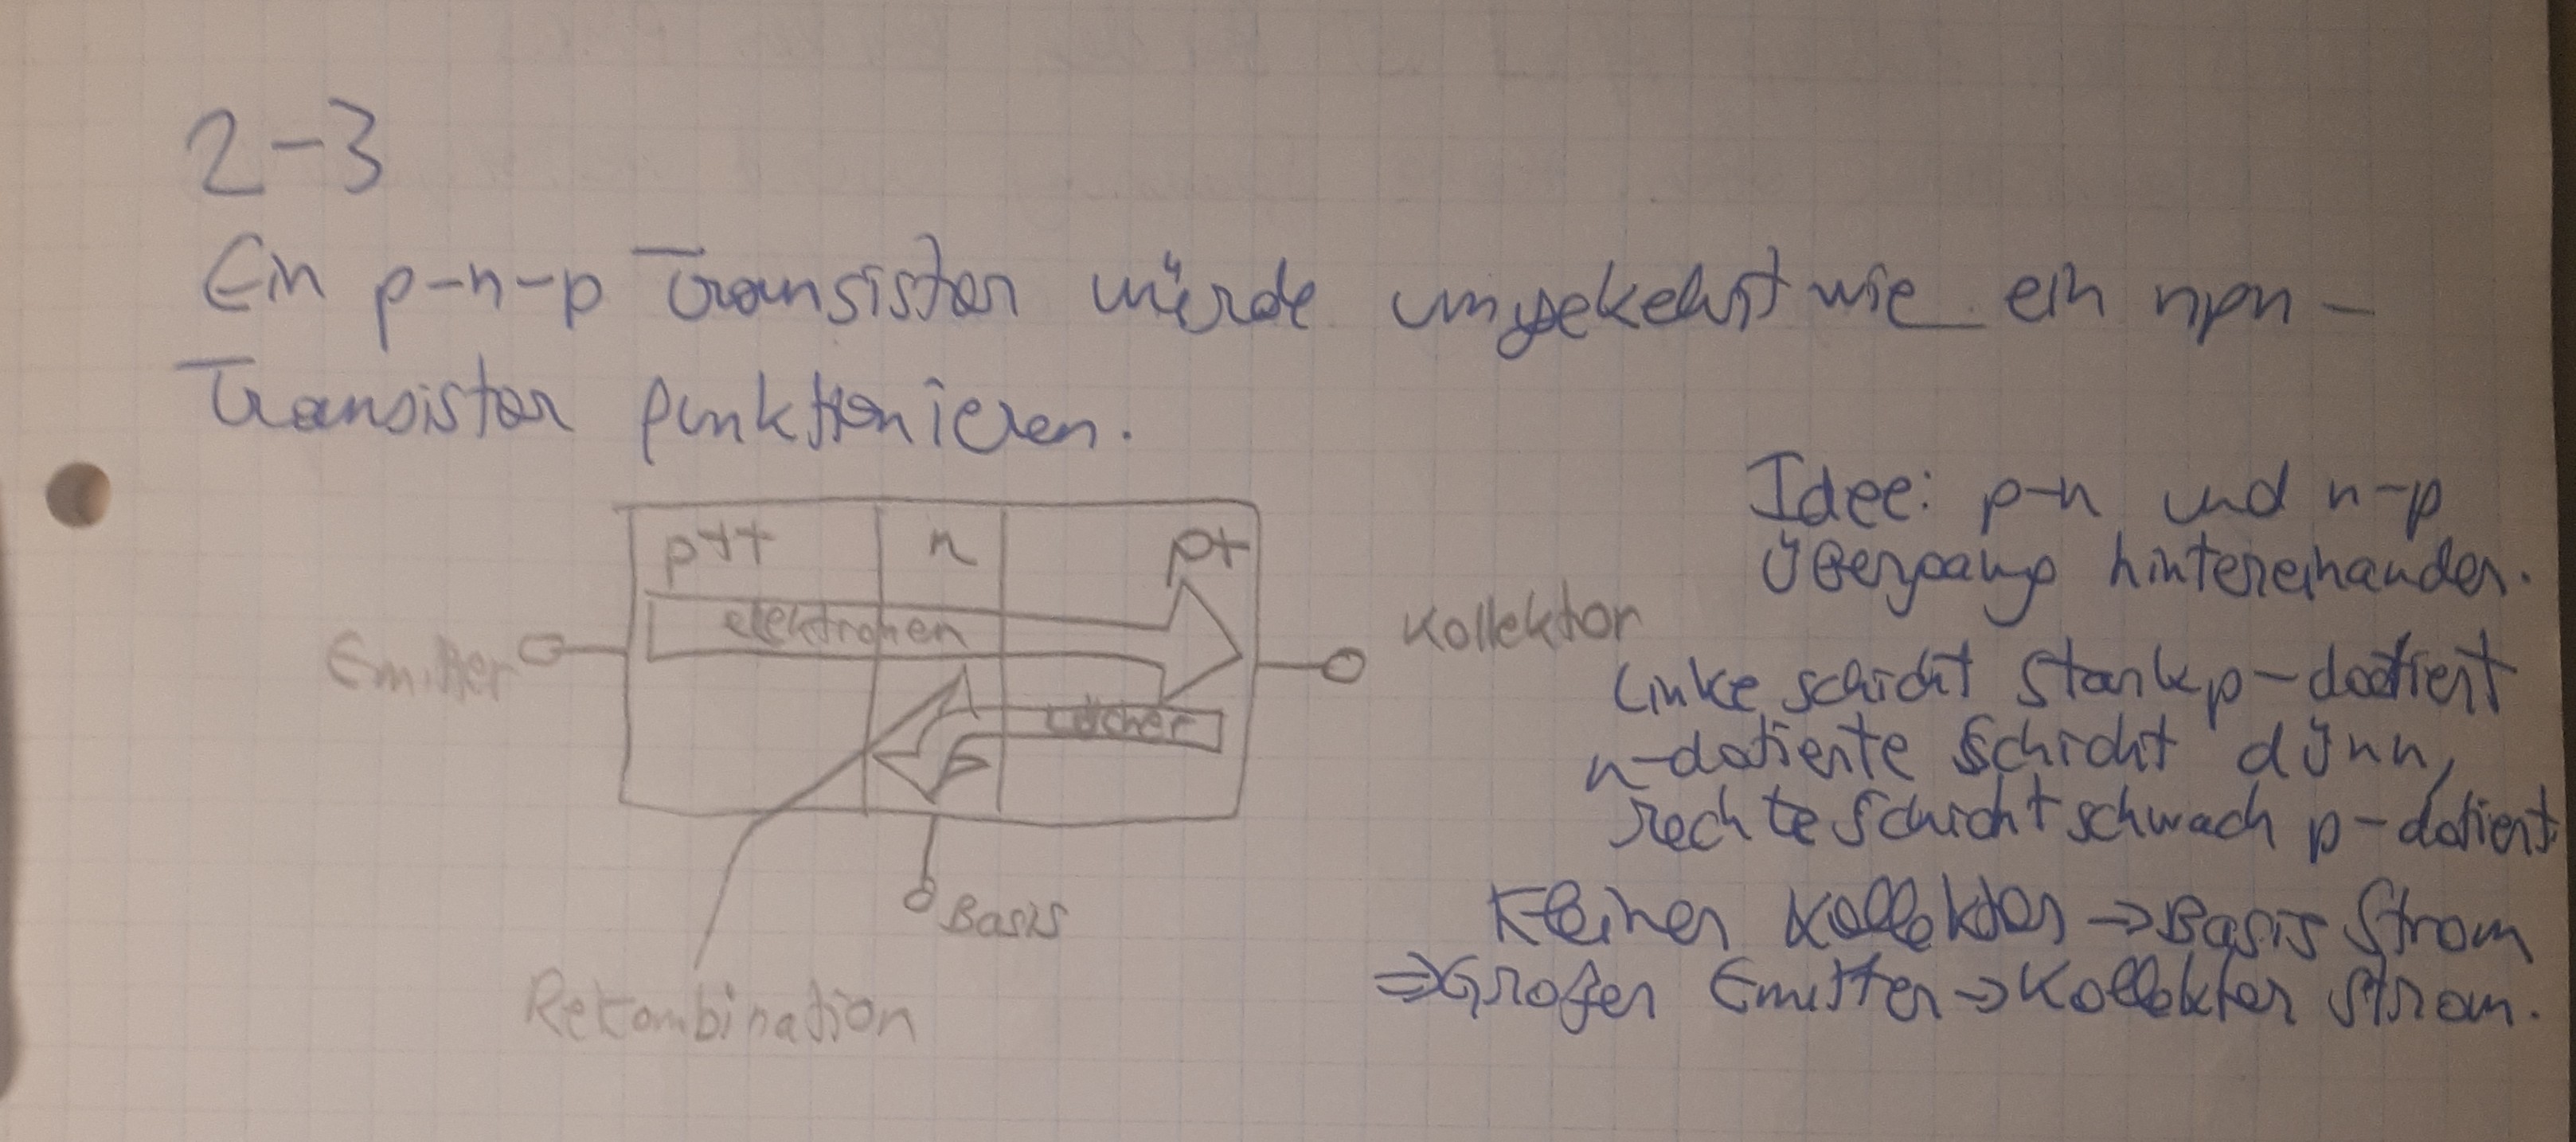 2-3
Ein p-n-p Transistor würde umgekehrt wie ein npn-
Transistor funktionieren.
p++ n p+
elektronen
Emitter
Kollektor
Löcher
Basis
Rekombination
Idee: p-n und n-p
Übergang hintereinander.
Linke schicht stark p-dotiert
n-dotierte Schicht dünn,
rechte Schicht schwach p-dotiert
Kleiner Kollektor → Basis Strom
⇒ Großer Emitter → Kollektor Strom.